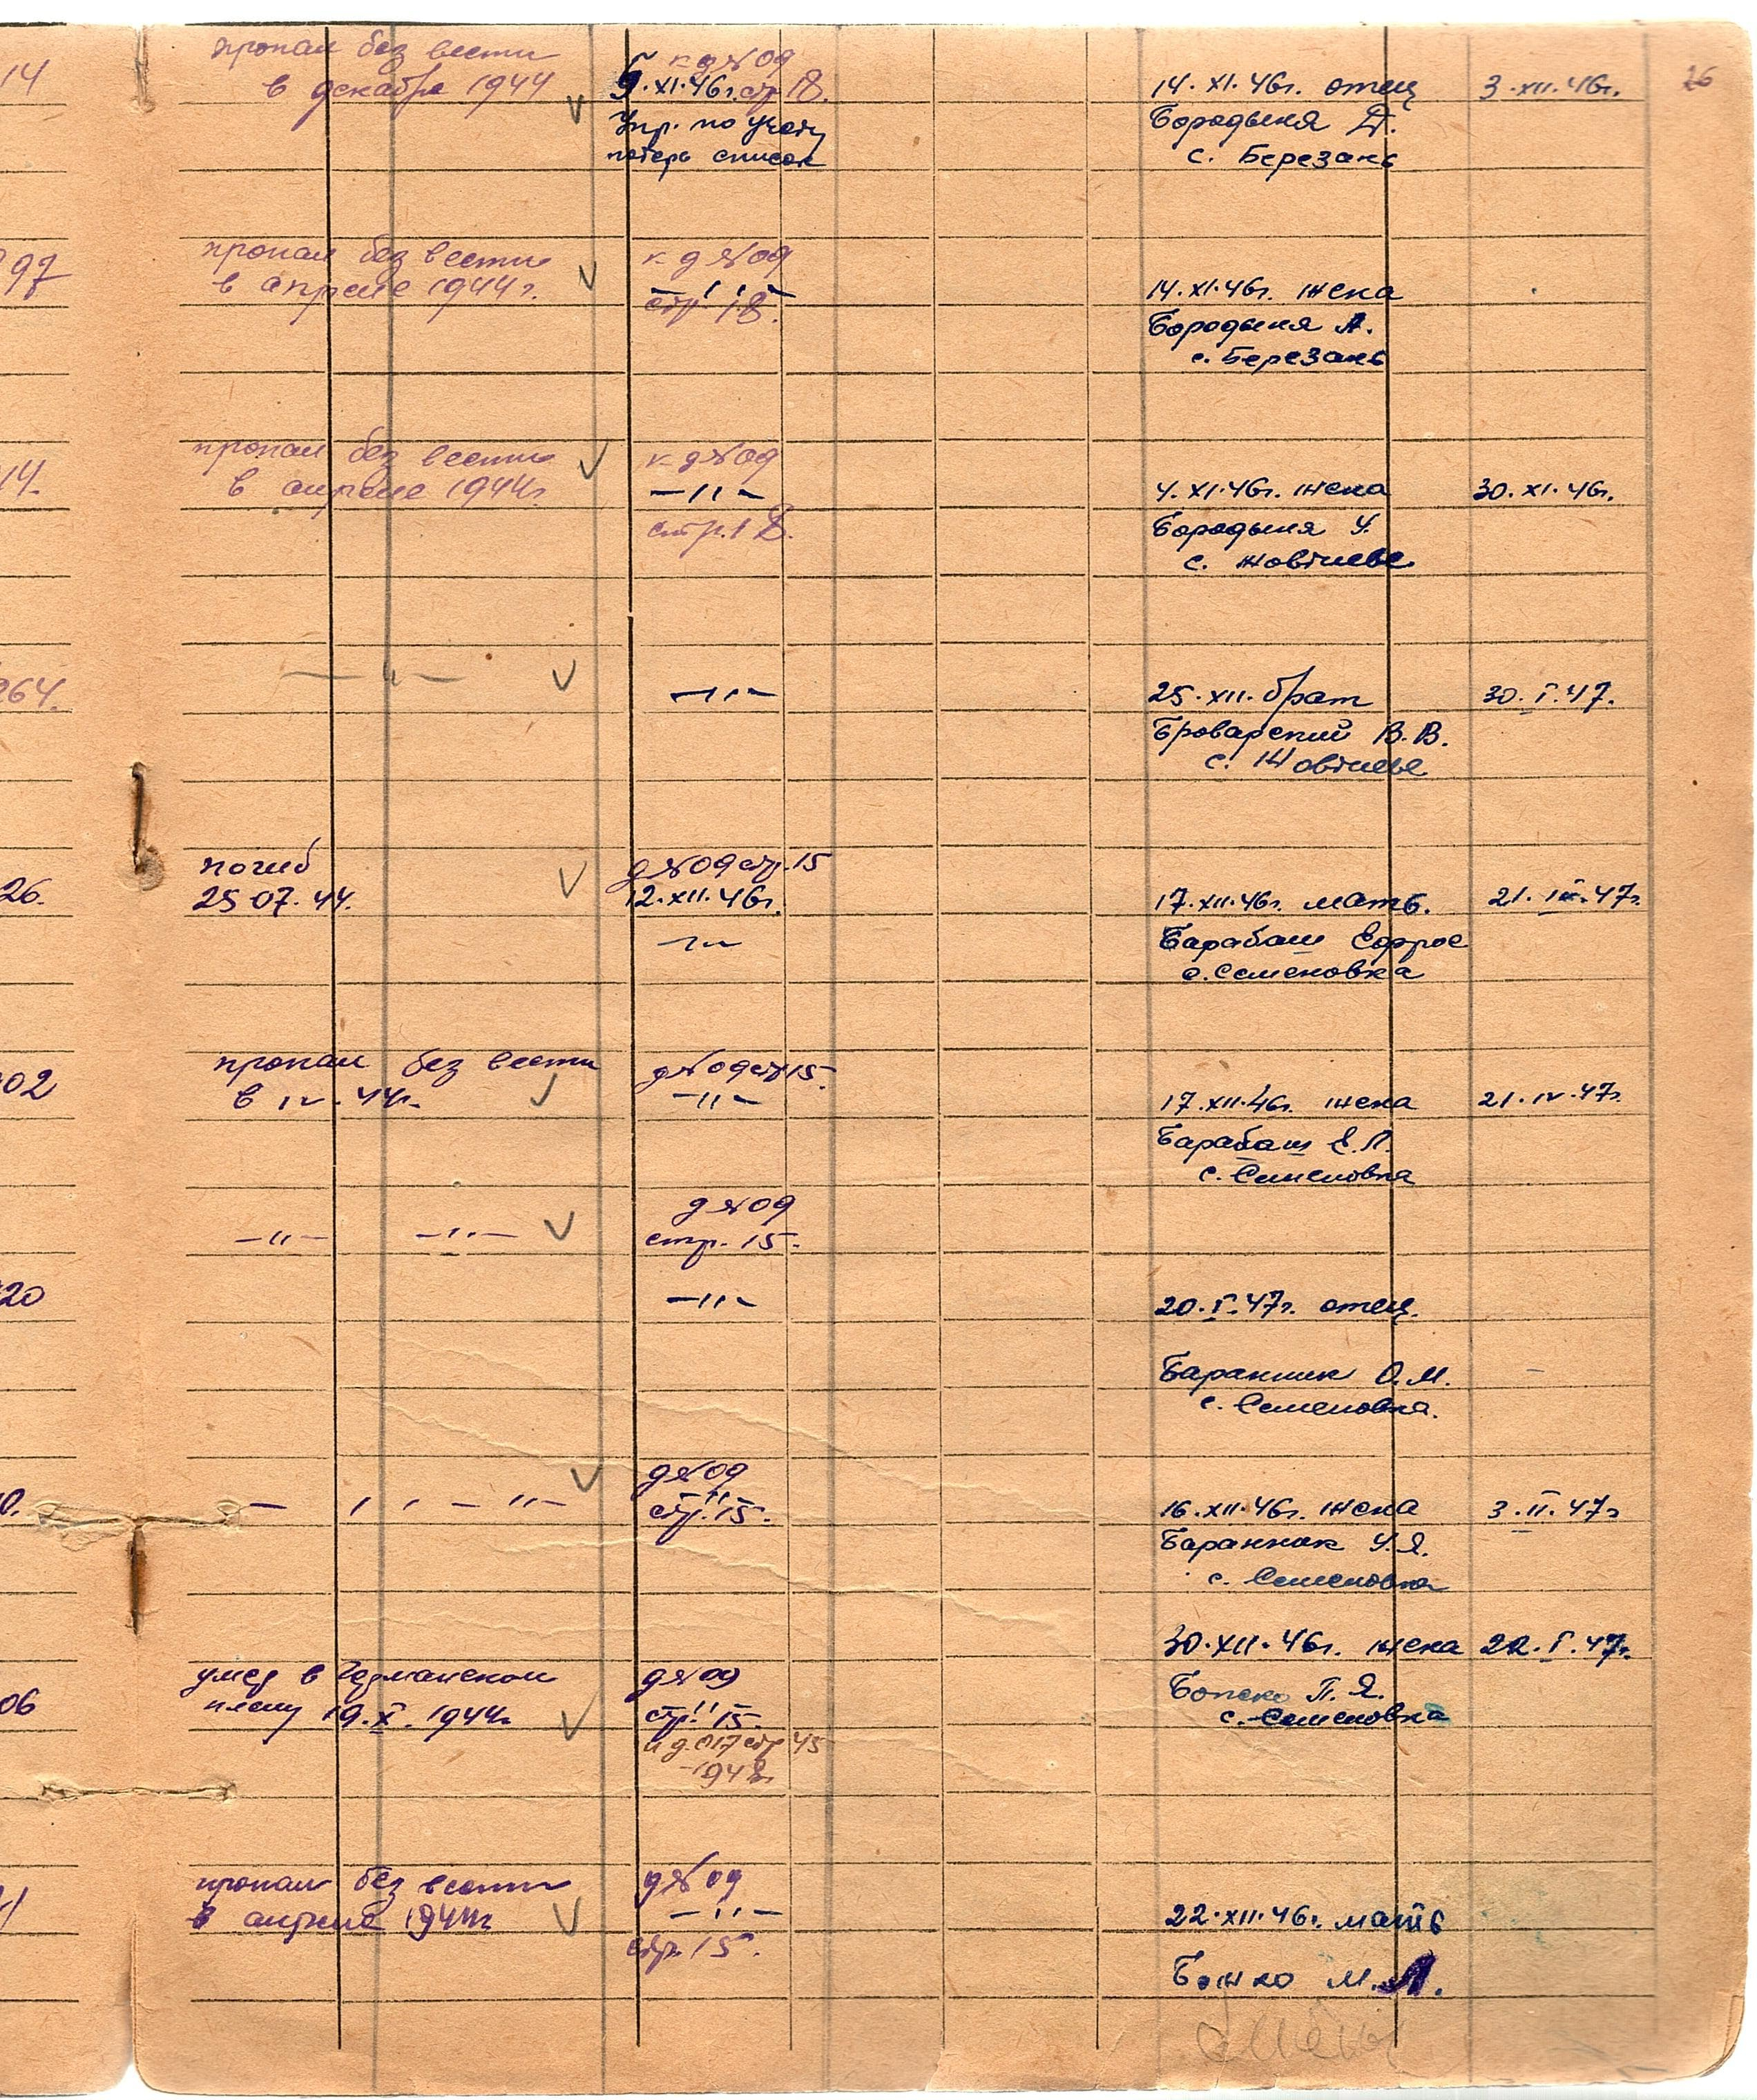 26
14
пропал без вести
в декабре 1944
к д №09
9.XI.46г. стр 18.
Упр. по учету
потерь список
14.XI.46г. отец
Бородыня Д.
с. Березань
3.XII.46г.
97
пропал без вести
в апреле 1944г.
к д №09
—〃—
стр. 18.
14.XI.46г. жена
Бородыня А.
с. Березань
14.
пропал без вести
в апреле 1944г
к д №09
—〃—
стр. 18.
4.XI.46г. жена
Бородыня У.
с. Жовтневе
30.XI.46г.
264.
—〃—
—〃—
25.XII. брат
Броварский В.В.
с. Жовтневе
30.I.47.
26.
погиб
25.07.44.
д №09 стр.15
12.XII.46г.
—〃—
17.XII.46г. мать.
Барабаш Ефрос
с. Семеновка
21. 47г.
02
пропал без вести
в IV.44г.
д №09 стр 15.
—〃—
17.XII.46г. жена
Барабаш Е.Л.
с. Семеновка
21.IV.47г.
—〃— —〃—
д №09
стр. 15.
20
—〃—
20.I.47г. отец.
Баранник О.М.
с. Семеновка.
—
0.
—〃— 〃—
д №09
—〃—
стр. 15.
16.XII.46г. жена
Баранник У.Я.
с. Семеновка
3.II.47г
06
умер в Германском
плену 19.X.1944г.
д №09
〃
стр. 15.
и д.017 стр 45
1948г
30.XII.46г. жена
П.Я.
с. Семеновка
22.I.47г.
1
пропал без вести
в апреле 1944г
д №09
—〃—
стр. 15.
22.XII.46г. мать
Божко М.Л.